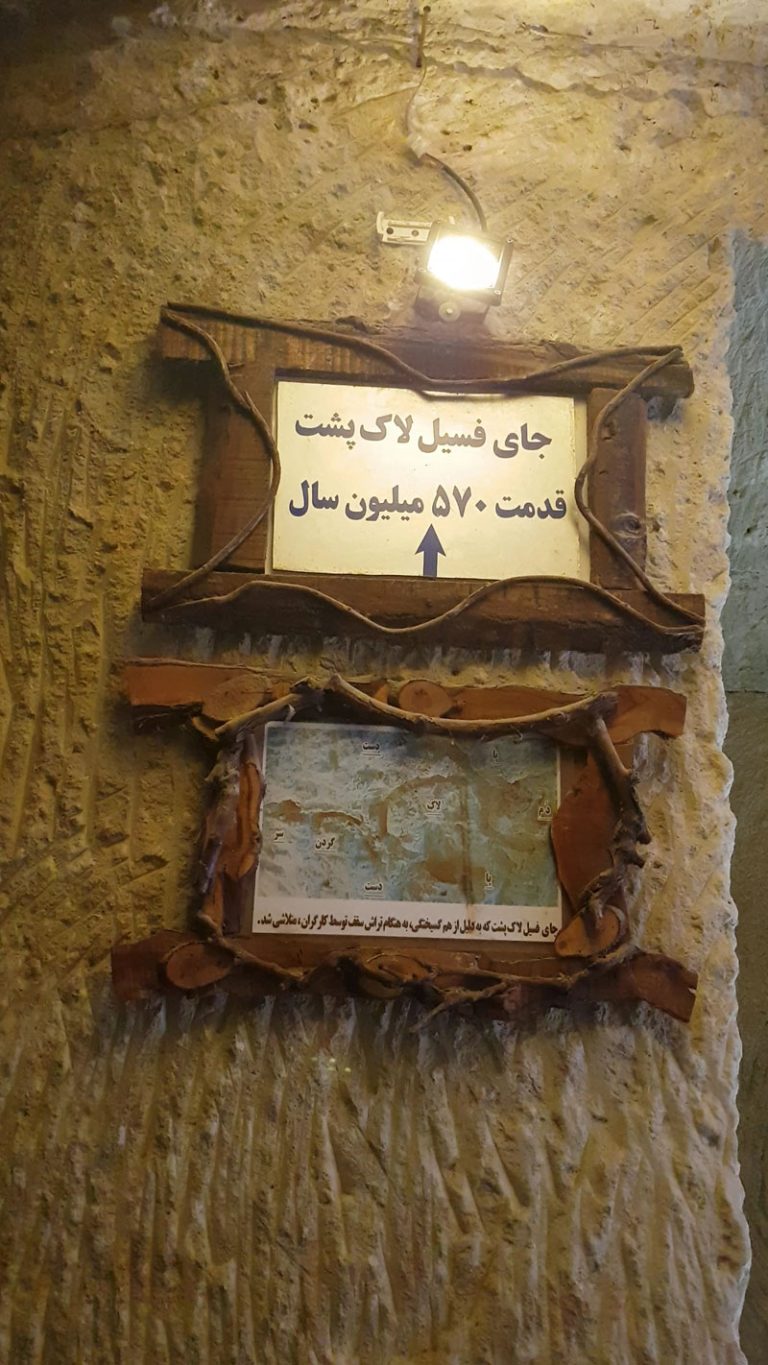 جای فسیل لاک پشت
قدمت ۵۷۰ میلیون سال
دست پا
لاک
دم
سر گردن
دست پا
جای فسیل لاک پشت که به دلیل از هم گسیختگی، به هنگام تراش سقف توسط کارگران، متلاشی شد.